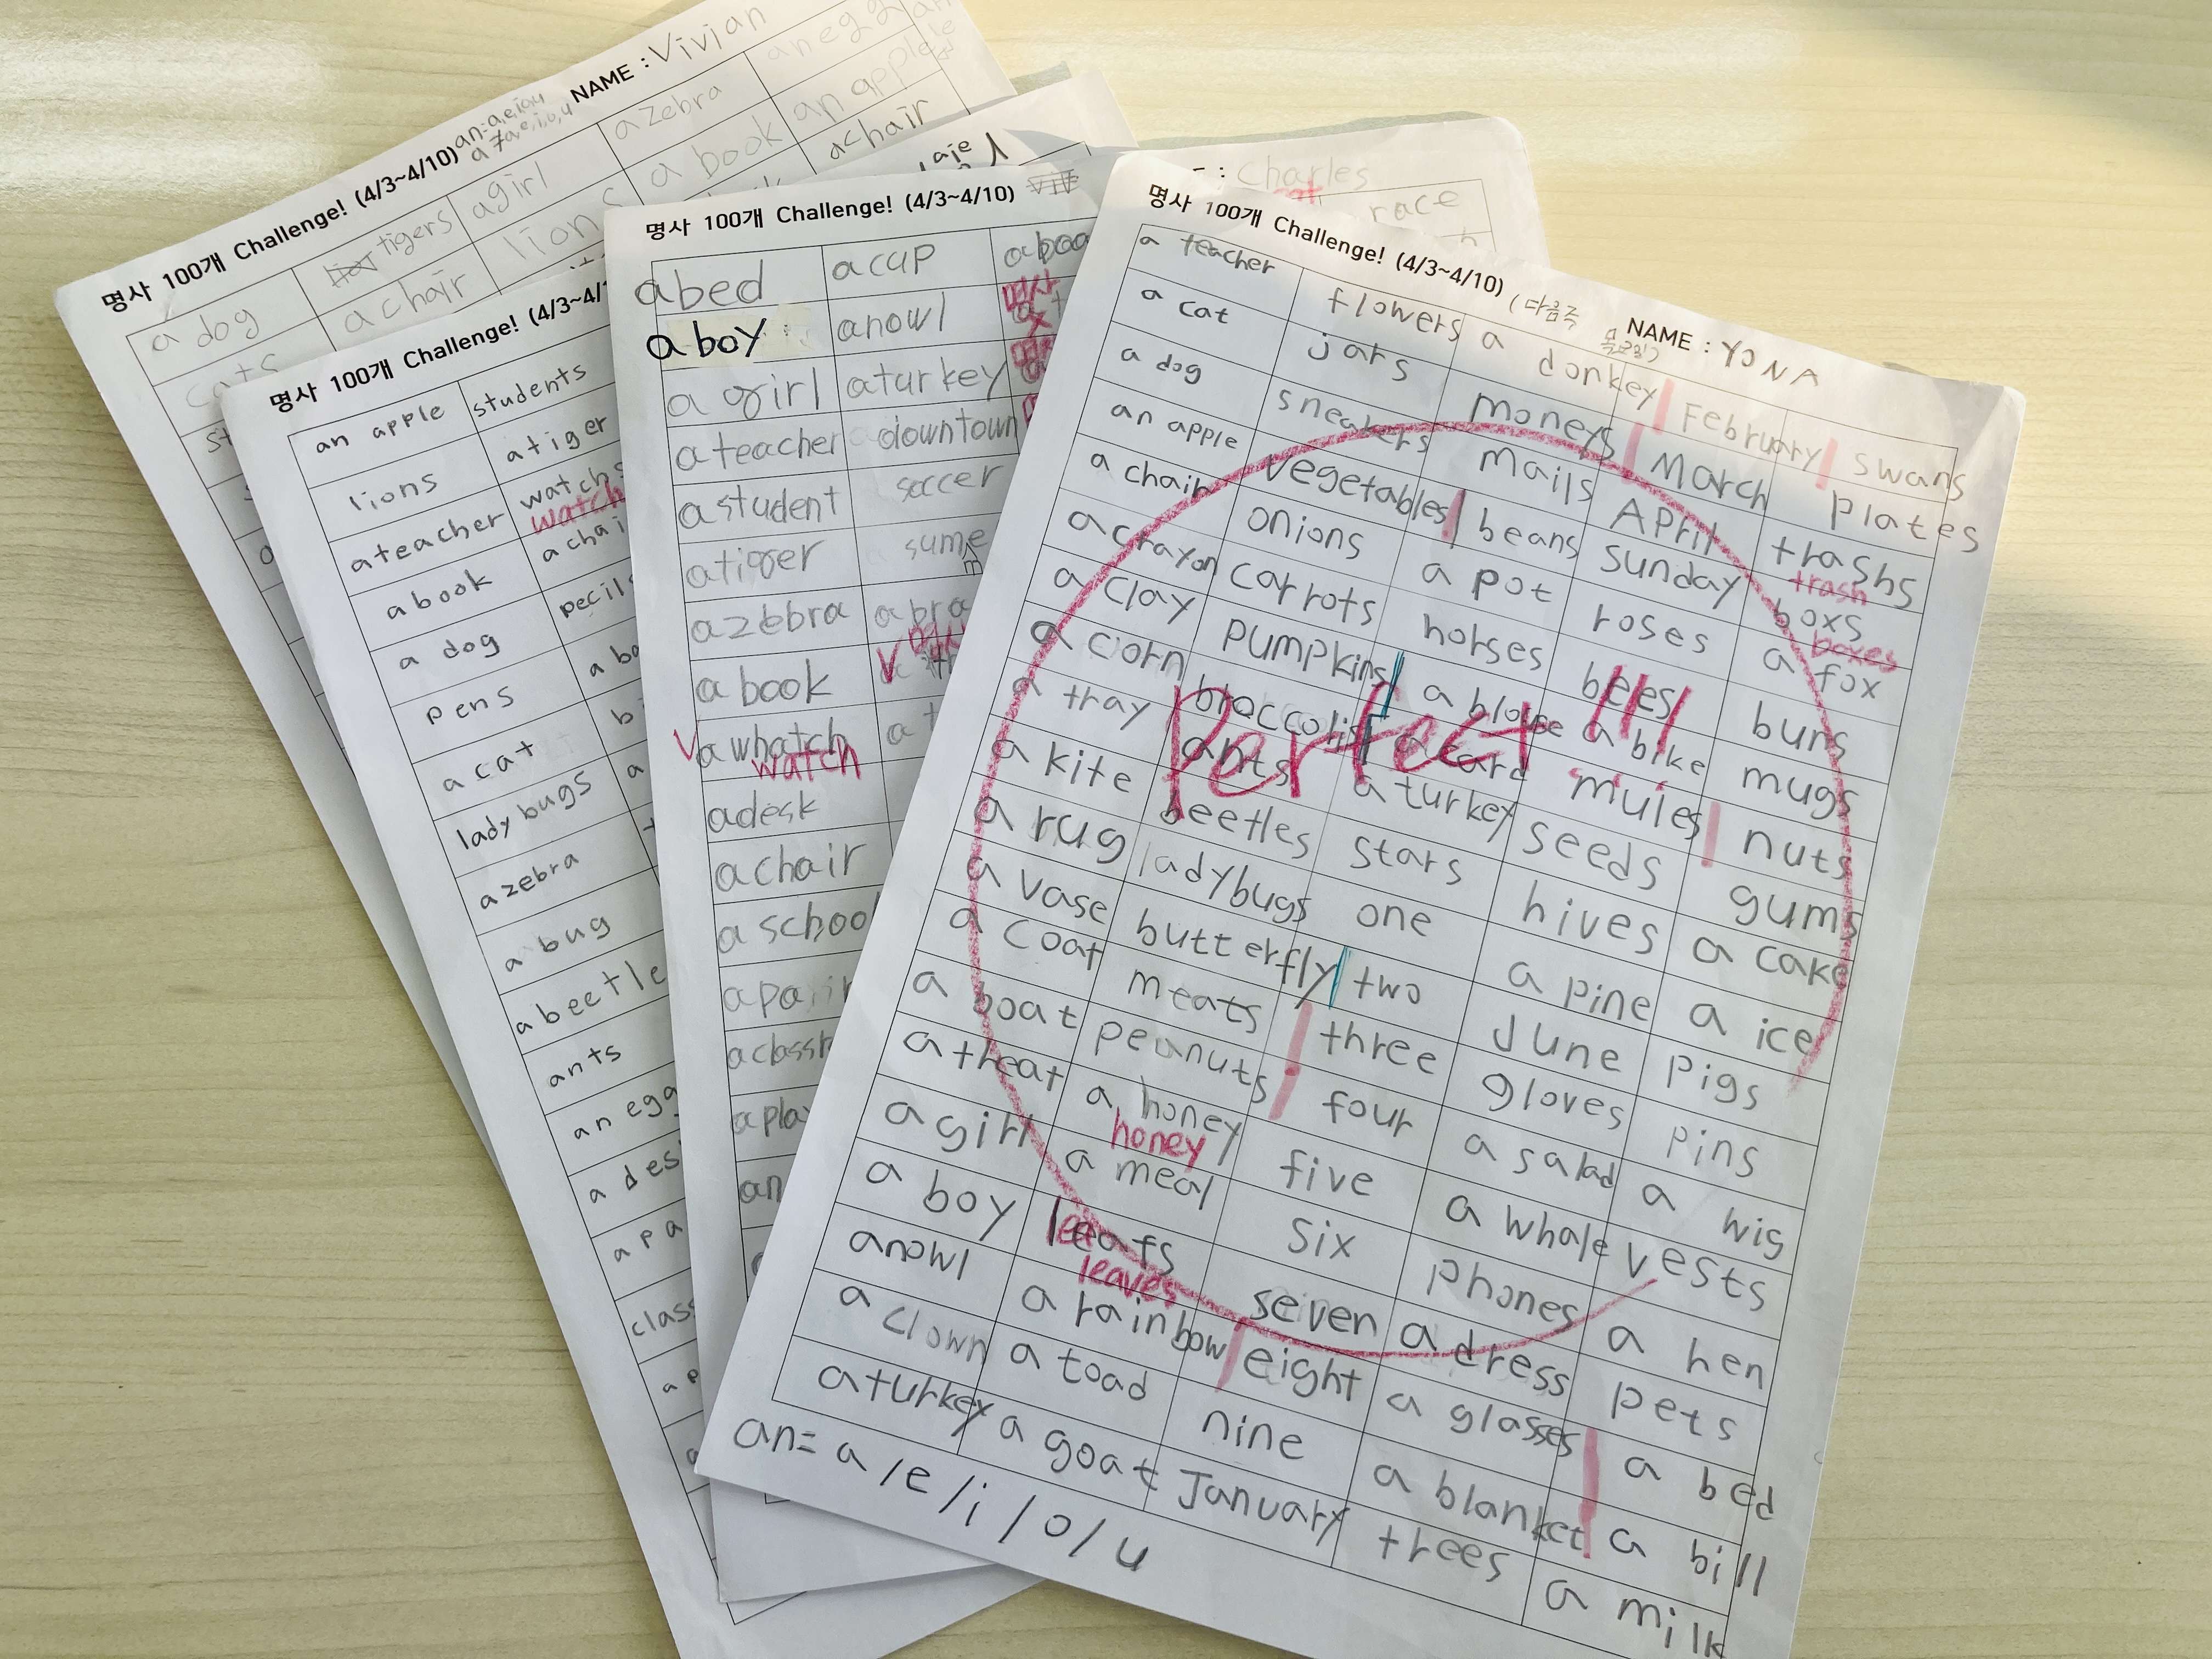 명사 100개 Challenge! (4/3~4/10) NAME : Vivian
an=a,e,i,o,u
a dog tigers a girl a zebra an egg
cats a chair lions a book an apple
a chair
명사 100개 Challenge! (4/3~4/1
an apple students
lions a tiger
a teacher watchs
watch
a book a chai
a dog pecils
pens a bo
a cat bi
lady bugs a
a zebra
a bug
a beetle
ants
an egg
a des
a pa
class
명사 100개 Challenge! (4/3~4/10)
a bed a cup a boo
명사
a boy an owl
a girl a turkey
a teacher downtown
a student soccer
a tiger sume
a zebra a bra
a book
a whatch
watch
a desk
a chair
a school
a pair
a classr
a play
an
: Charles
race
명사 100개 Challenge! (4/3~4/10) (다음쪽 NAME : YONA
a teacher flowers a donkey February swans
a cat jars moneys March plates
a dog sneakers mails April trashs
trash
an apple vegetables beans Sunday boxs
boxes
a chair onions a pot roses a fox
a crayon carrots horses bees buns
a clay pumpkins a blouse a bike mugs
a corn broccolis a card mules nuts
a tray ants a turkey seeds gums
a kite beetles stars hives a cake
a rug ladybugs one a pine a ice
a vase butterfly two June pigs
a coat meats three gloves pins
a boat peanuts four a salad a wig
a theat a honey five a whale vests
honey
a girl a meal six phones a hen
a boy leafs seven a dress pets
leaves
an owl a rainbow eight a glasses a bed
a clown a toad nine a blanket a bill
a turkey a goat January trees a milk
Perfect !!!
an= a / e / i / o / u